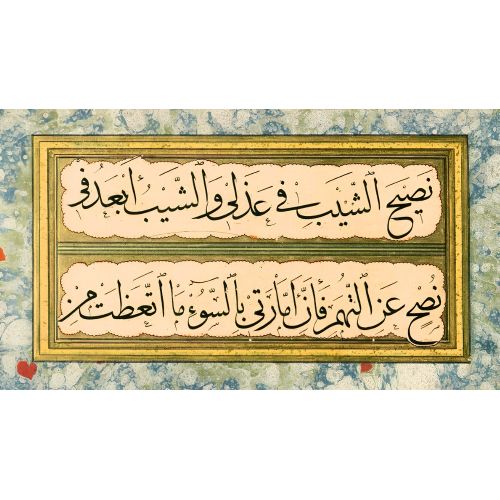 نَصِيحَ الشَّيْبِ فِي عَذَلِي وَالشَّيْبُ أَبْعَدُ فِي
نُصْحٍ عَنِ التُّهَمِ فَإِنَّ أَمَّارَتِي بِالسُّوءِ مَا اتَّعَظَتْ مِنْ